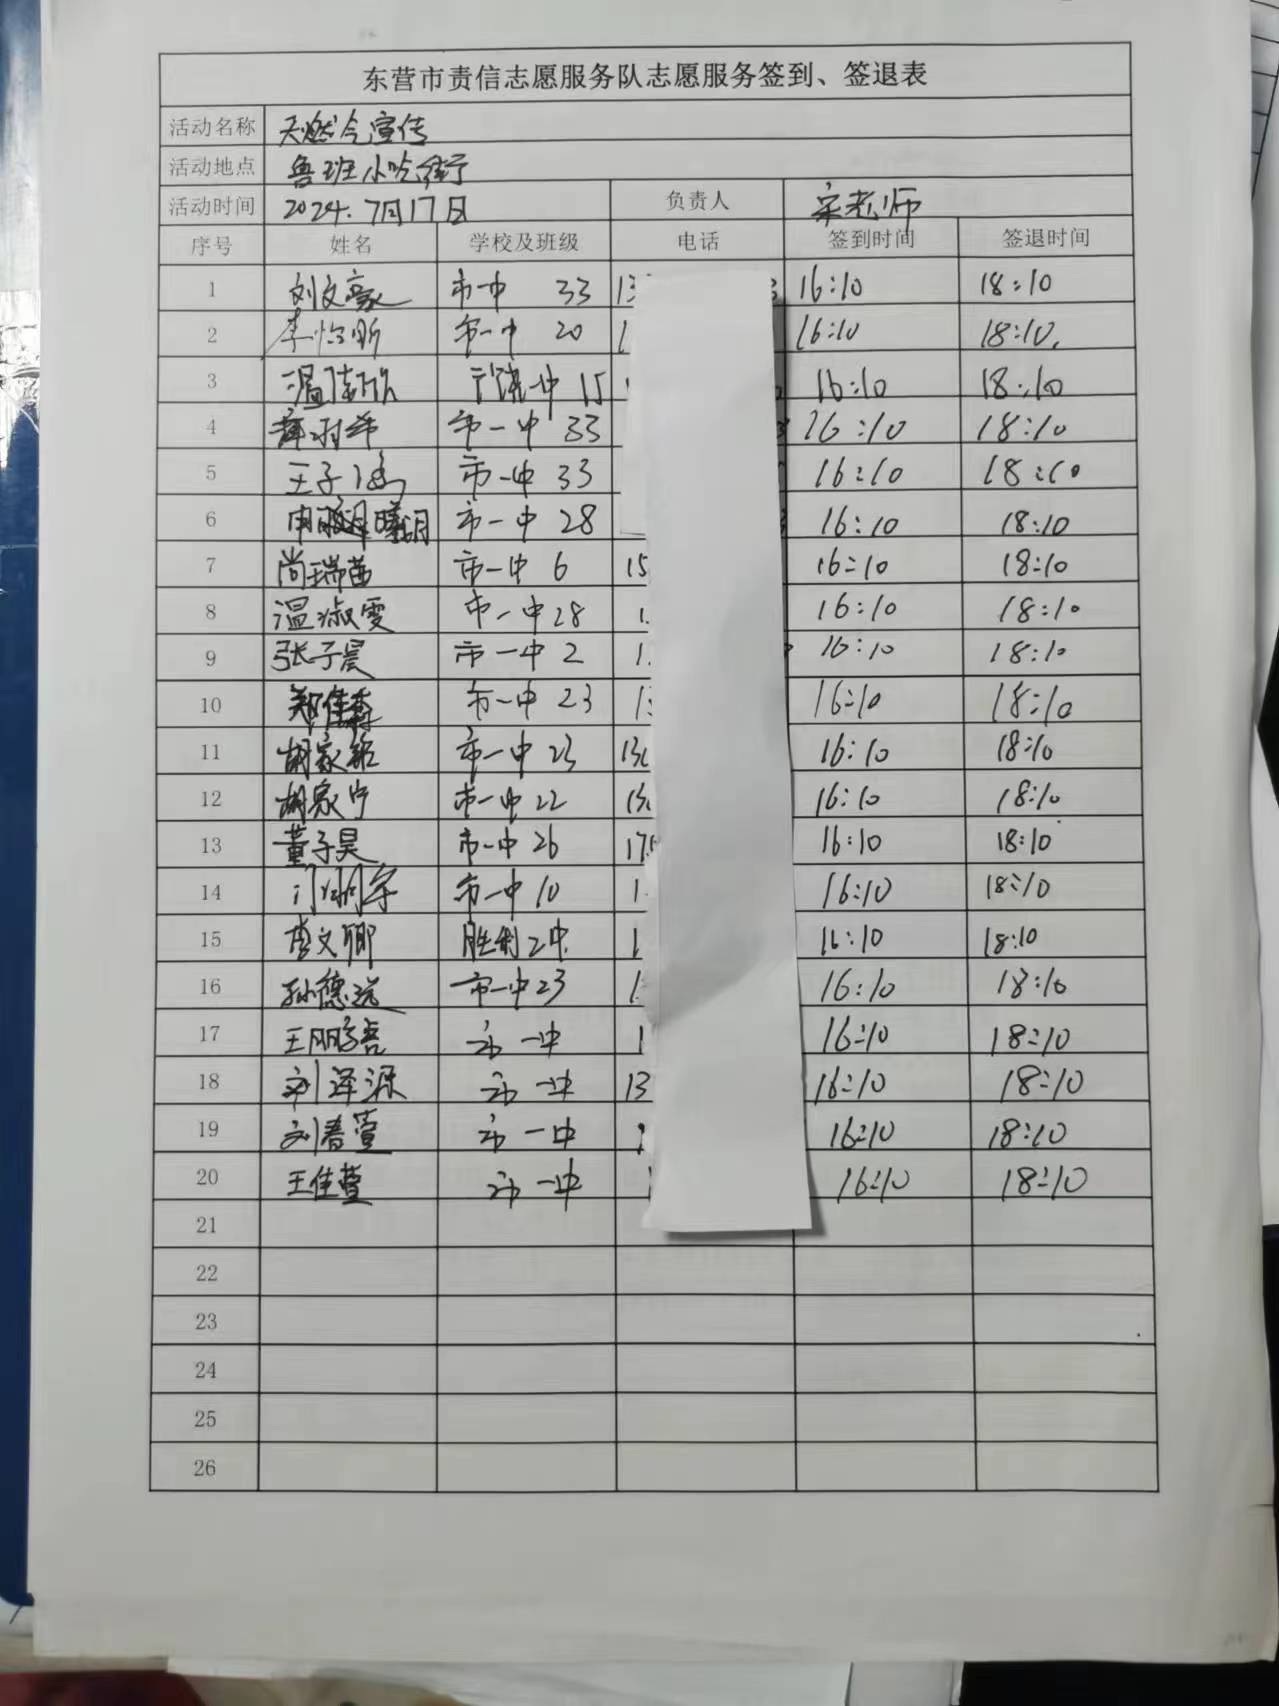 东营市责信志愿服务队志愿服务签到、签退表
活动名称 天燃气宣传
活动地点 鲁班小吃街
活动时间 2024.7月17日 负责人 宋老师
序号 姓名 学校及班级 电话 签到时间 签退时间
1 刘文豪 市一中 33 13 3 16:10 18:10
2 李怡昕 市一中 20 1 16:10 18:10.
3 广饶一中 15 16:10 18:10
4 薛羽希 市一中 33 16:10 18:10
5 王子涵 市一中 33 16:10 18:10
6 市一中 28 16:10 18:10
7 尚瑞茜 市一中 6 15 16:10 18:10
8 温淑雯 市一中 28 1 16:10 18:10
9 张子晨 市一中 2 1 16:10 18:10
10 郑佳鑫 市一中 23 13 16:10 18:10
11 胡家铭 市一中 23 130 16:10 18:10
12 胡家宁 市一中 22 130 16:10 18:10
13 董子昊 市一中 26 175 16:10 18:10
14 市一中 10 1 16:10 18:10
15 李文卿 胜利2中 1 16:10 18:10
16 孙德远 市一中 23 1 16:10 18:10
17 王鹏喜 市一中 1 16:10 18:10
18 刘泽源 市一中 13 16:10 18:10
19 刘春萱 市一中 16:10 18:10
20 王佳萱 市一中 16:10 18:10
21
22
23
24
25
26